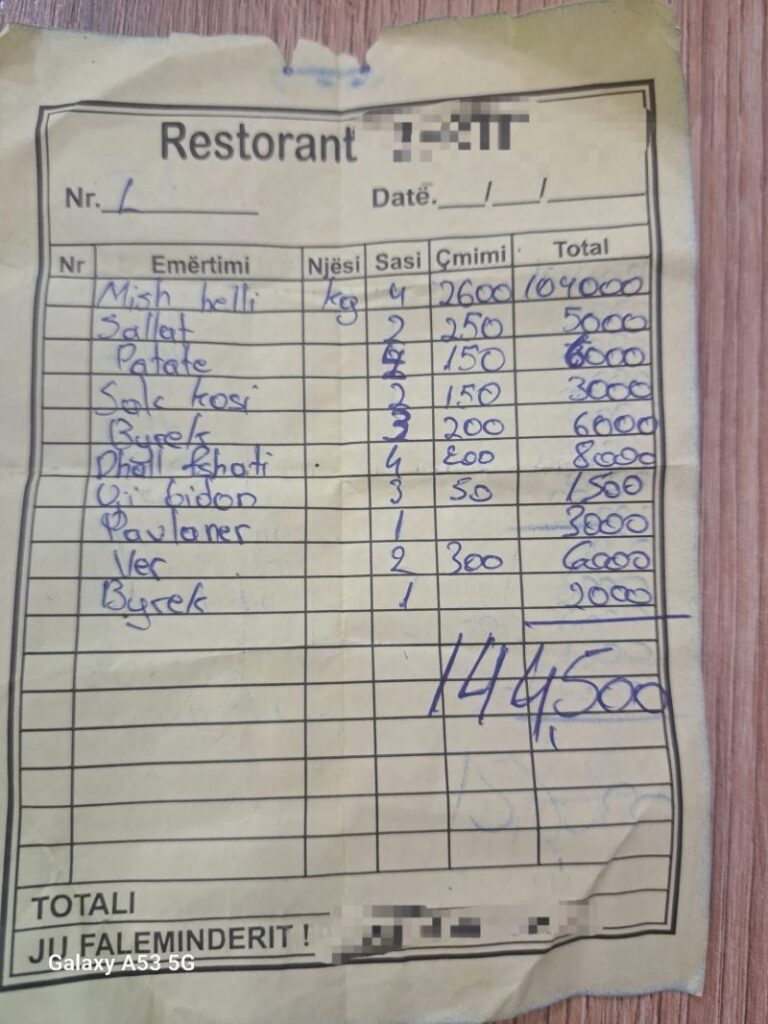 Restorant
Nr. 1 Datë. __/__/__
Nr Emërtimi Njësi Sasi Çmimi Total
Mish helli kg 4 2600 104000
Sallat 2 250 5000
Patate 4 150 6000
Salc kosi 2 150 3000
Byrek 3 200 6000
Dhall fshati 4 200 8000
Uj bidon 3 50 1500
Paulaner 1 3000
Ver 2 300 6000
Byrek 1 2000
144500
TOTALI
JU FALEMINDERIT !
Galaxy A53 5G